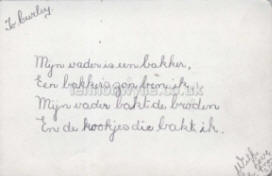 To Curley.
Mijn vader is een bakker,
Een bakkerszoon ben ik
Mijn vader bakt de broden
En de kookjes die bakt ik.